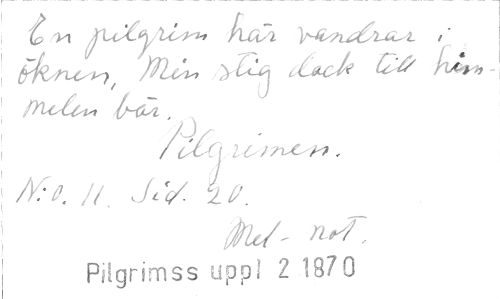 En pilgrim här vandrar i
öknen, Min stig dock till him-
melen bär.
Pilgrimen.
N:o. 11. Sid. 20.
Mel- not.
Pilgrimss uppl 2 1870